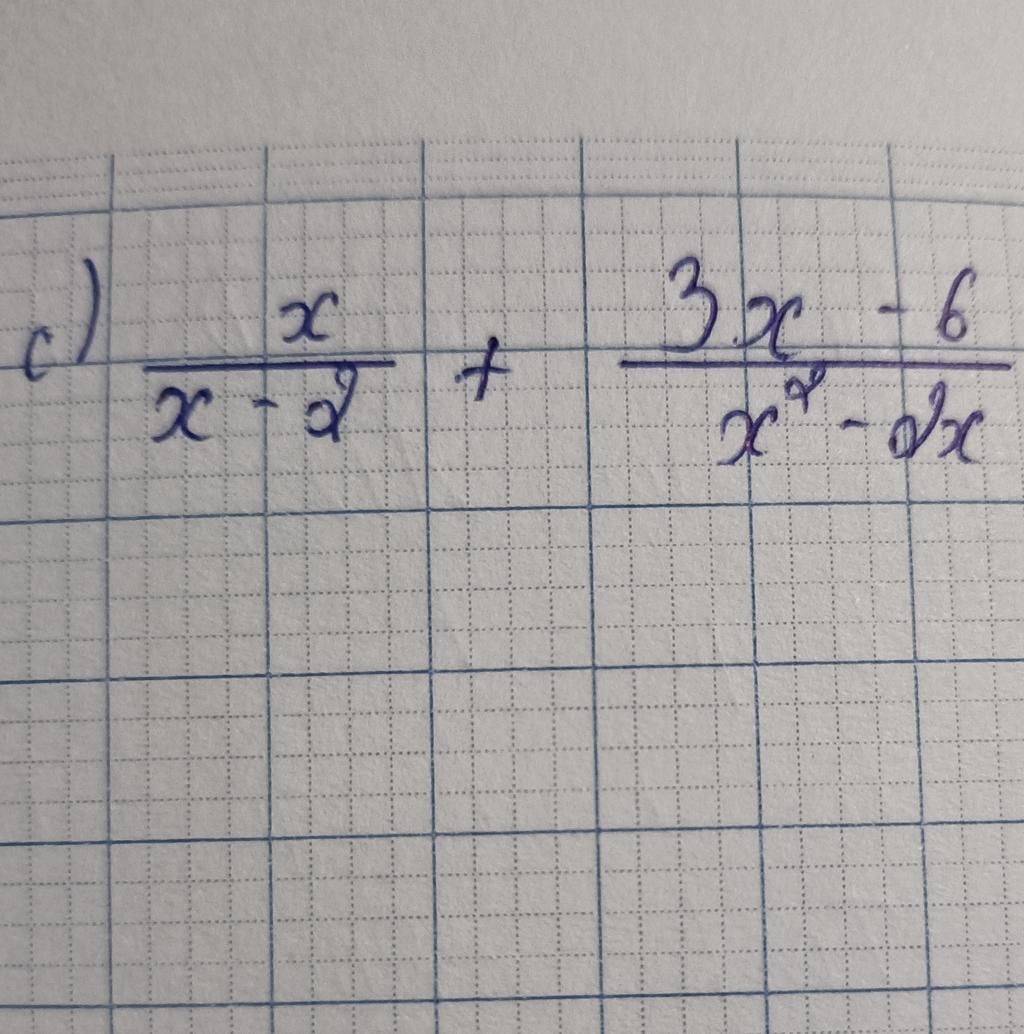 c) x/(x - 2) + (3x - 6)/(x² - 2x)